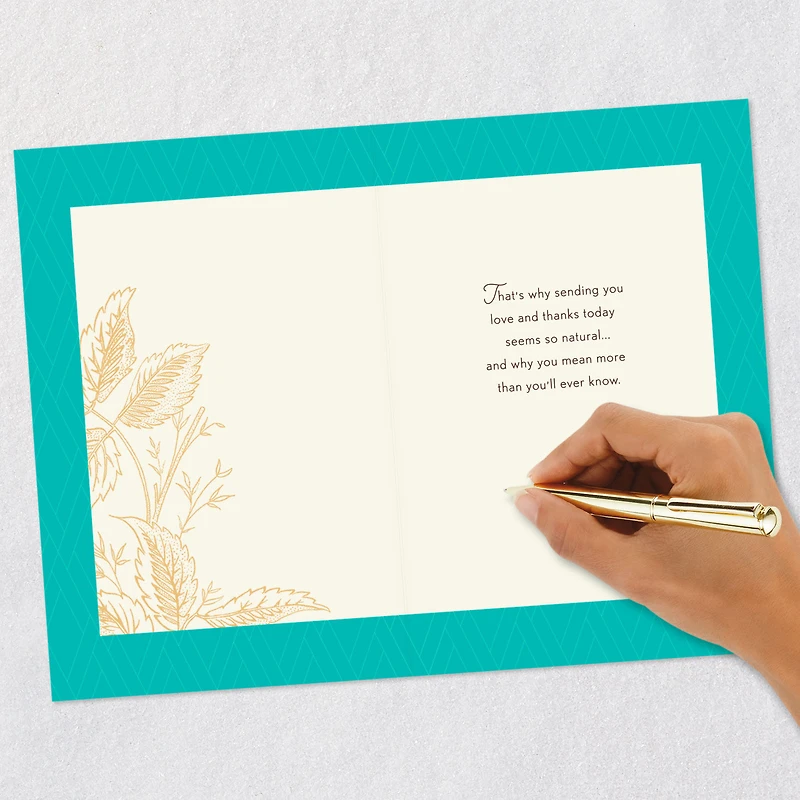 That's why sending you
love and thanks today
seems so natural...
and why you mean more
than you'll ever know.